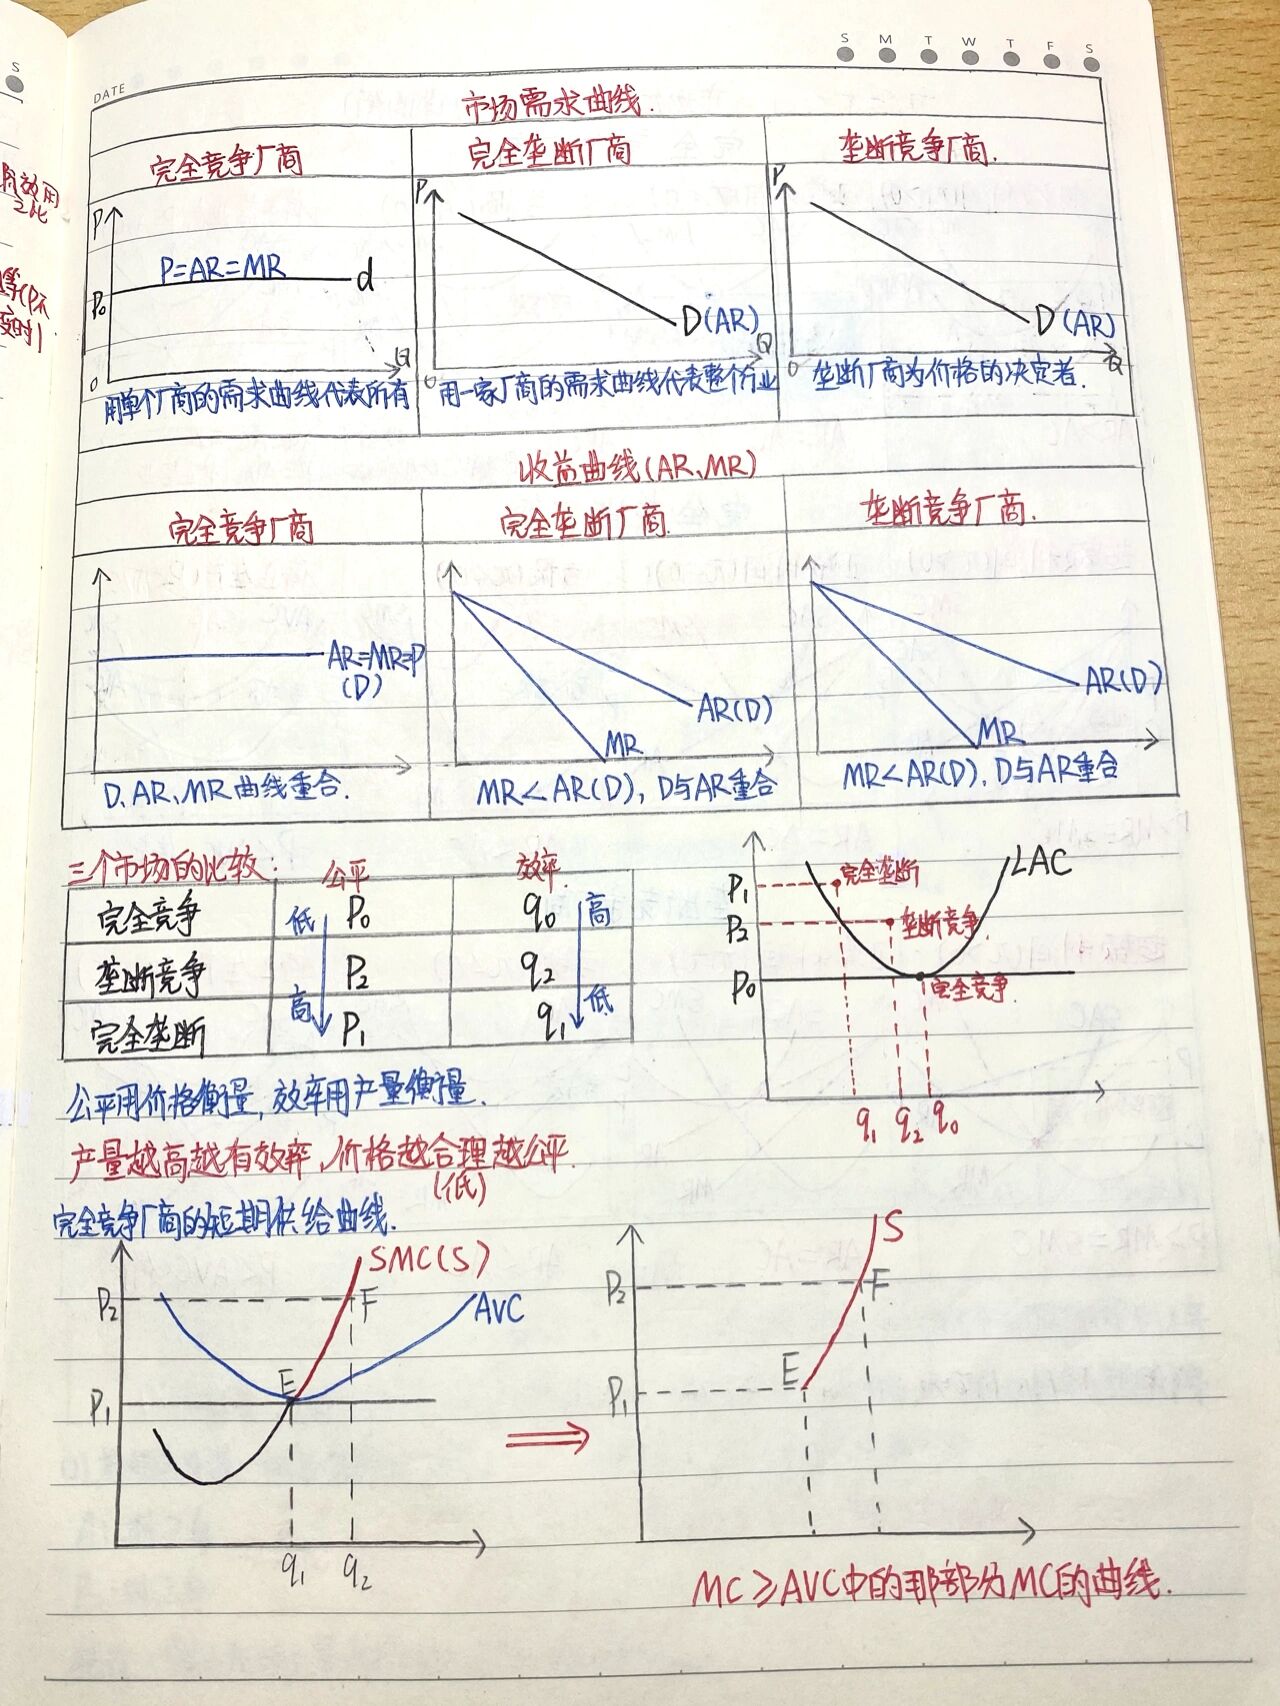 S M T W T F S
S
DATE
市场需求曲线.
完全竞争厂商 完全垄断厂商 垄断竞争厂商.
P P P
P=AR=MR d
P₀
D(AR) D(AR)
0 Q 0 Q 0 Q
用单个厂商的需求曲线代表所有 用一家厂商的需求曲线代表整个行业 垄断厂商为价格的决定者.
收益曲线(AR、MR)
完全竞争厂商 完全垄断厂商. 垄断竞争厂商.
AR=MR=P
(D)
AR(D) AR(D)
MR MR
D、AR、MR曲线重合. MR<AR(D), D与AR重合 MR<AR(D), D与AR重合
三个市场的比较: 公平 效率
完全竞争 低 P₀ q₀ 高
垄断竞争 P₂ q₂
完全垄断 高 P₁ q₁ 低
LAC
P₁ 完全垄断
P₂ 垄断竞争
P₀ 完全竞争
q₁ q₂ q₀
公平用价格衡量,效率用产量衡量.
产量越高越有效率,价格越合理越公平.
(低)
完全竞争厂商的短期供给曲线.
SMC(S)
P₂ F
AVC
E
P₁
q₁ q₂
S
P₂ F
E
P₁
MC≥AVC中的那部分MC的曲线.